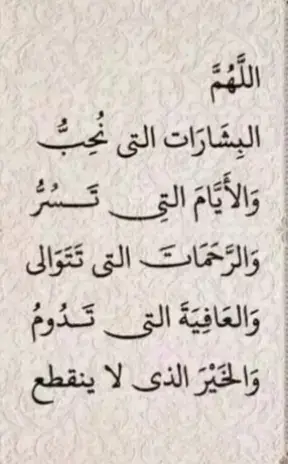 اللَّهُمَّ
البِشَارَات التى نُحِبُّ
وَالأَيَّامَ التِى تَـسُرُّ
وَالرَّحَمَاتَ التى تَتَوَالى
وَالعَافِيَةَ التى تَـدُومُ
وَالخَيْرَ الذى لا ينقطع